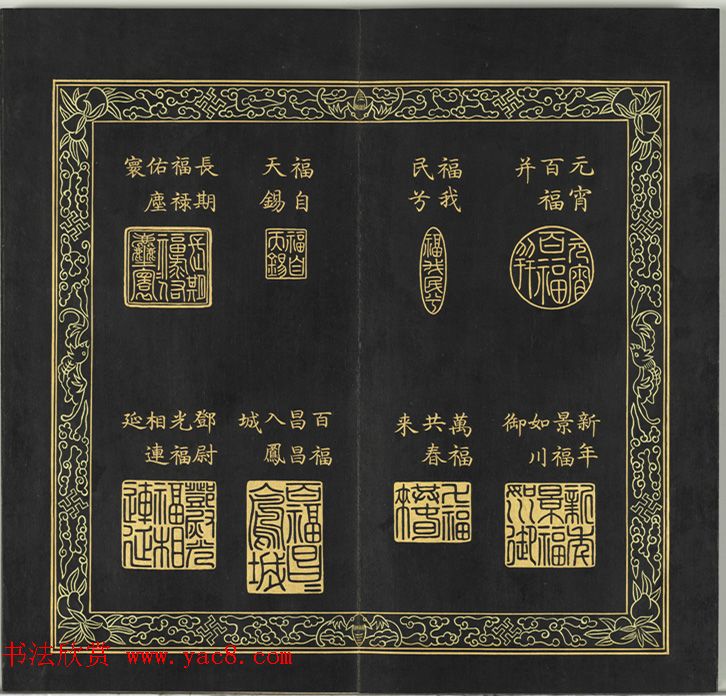 元宵百福并
福我民兮
福自天錫
長期福祿佑塵寰
新年景福如川御
萬福共春来
百福昌昌入鳳城
鄧尉光福相連延
福我民兮
福自天錫
书法欣赏 www.yac8.com